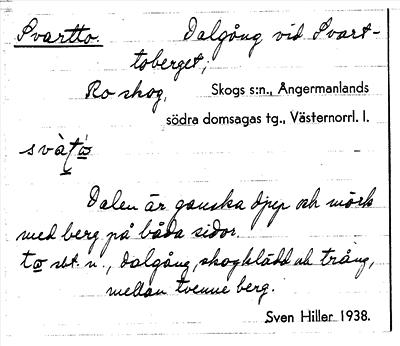 Svartto. Dalgång vid Svart-
toberget;
Ro skog, Skogs s:n., Ångermanlands
södra domsagas tg., Västernorrl. l.
Dalen är ganska djup och mörk
med berg på båda sidor.
to sbt. n., dalgång, skogklädd och trång,
mellan tvenne berg.
Sven Hiller 1938.